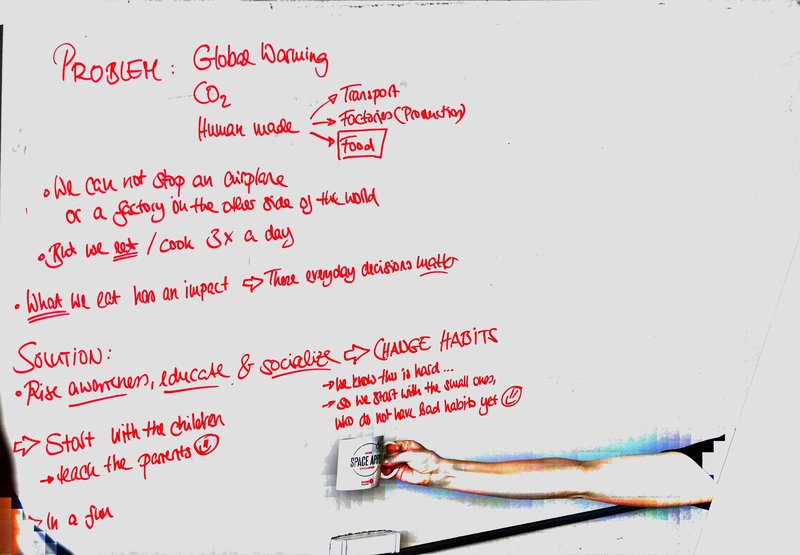 PROBLEM: Global Warming
CO2
Human made → Transport
→ Factories (Production)
→ Food
• We can not stop an airplane
or a factory on the other side of the world
• But we eat / cook 3x a day
• What we eat has an impact ⇨ These everyday decisions matter
SOLUTION:
• Rise awareness, educate & socialize ⇨ CHANGE HABITS
→ We know this is hard...
→ so we start with the small ones,
who do not have bad habits yet
⇨ Start with the children
→ teach the parents
→ In a fun
SPACE APPS